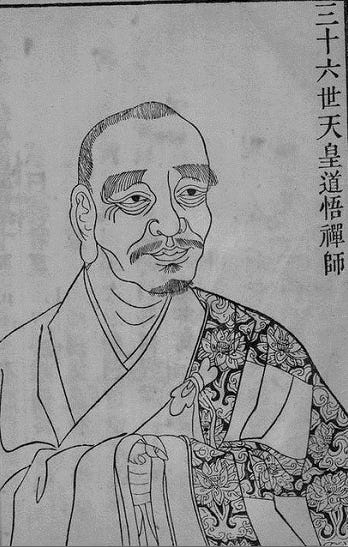 三十六世天皇道悟禪師